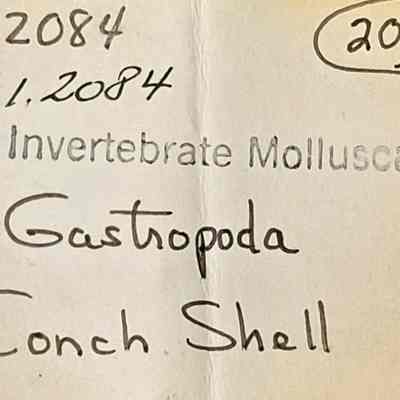 2084
20
1.2084
Invertebrate Mollusca
Gastropoda
Conch Shell